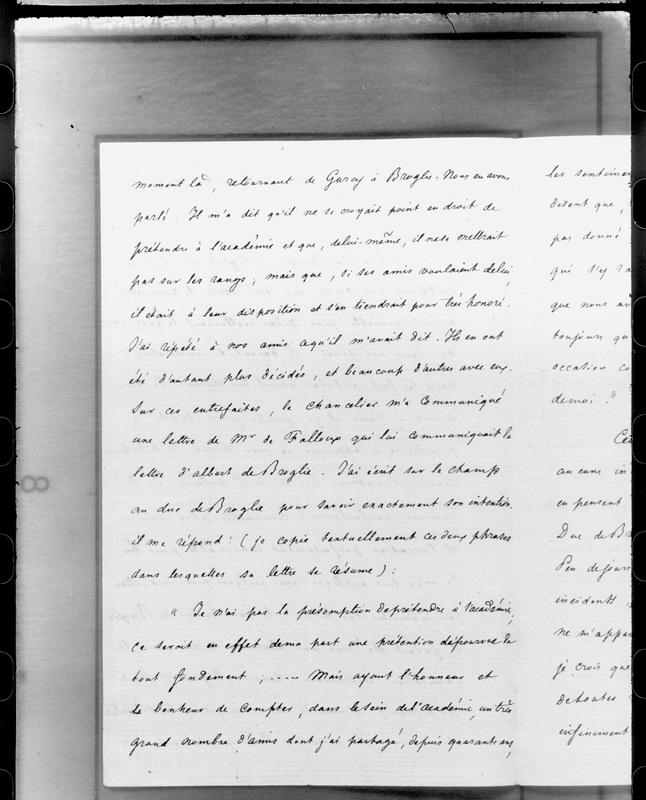 moment là, retournant de Gurcy à Broglie. Nous en avons
parlé. Il m'a dit qu'il ne se croyait point en droit de
prétendre à l'académie et que, de lui-même, il ne se mettrait
pas sur les rangs; mais que, si ses amis voulaient de lui,
il était à leur disposition et s'en tiendrait pour très honoré.
J'ai répété à nos amis ce qu'il m'avait dit. Ils en ont
été d'autant plus décidés, et beaucoup d'autres avec eux.
Sur ces entrefaites, le chancelier m'a communiqué
une lettre de Mr de Falloux qui lui communiquait la
lettre d'albert de Broglie. J'ai écrit sur le champ
au duc de Broglie pour savoir exactement son intention.
il me répond: (je copie textuellement ces deux phrases
dans lesquelles sa lettre se résume):
" Je n'ai pas la présomption de prétendre à l'académie,
ce serait en effet de ma part une prétention dépourvue de
tout fondement; ..... Mais ayant l'honneur et
le bonheur de compter, dans le sein de l'académie, un très
grand nombre d'amis dont j'ai partagé, depuis quarante ans,
les sentimen
disent que,
pas donné
qui s'y ra
que nous av
toujours qu
occasion co
demoi. "
Cec
aucune in
en pensent
Duc de Br
Peu de jours
incidents
ne m'appar
je crois que
de toutes
infiniment
8